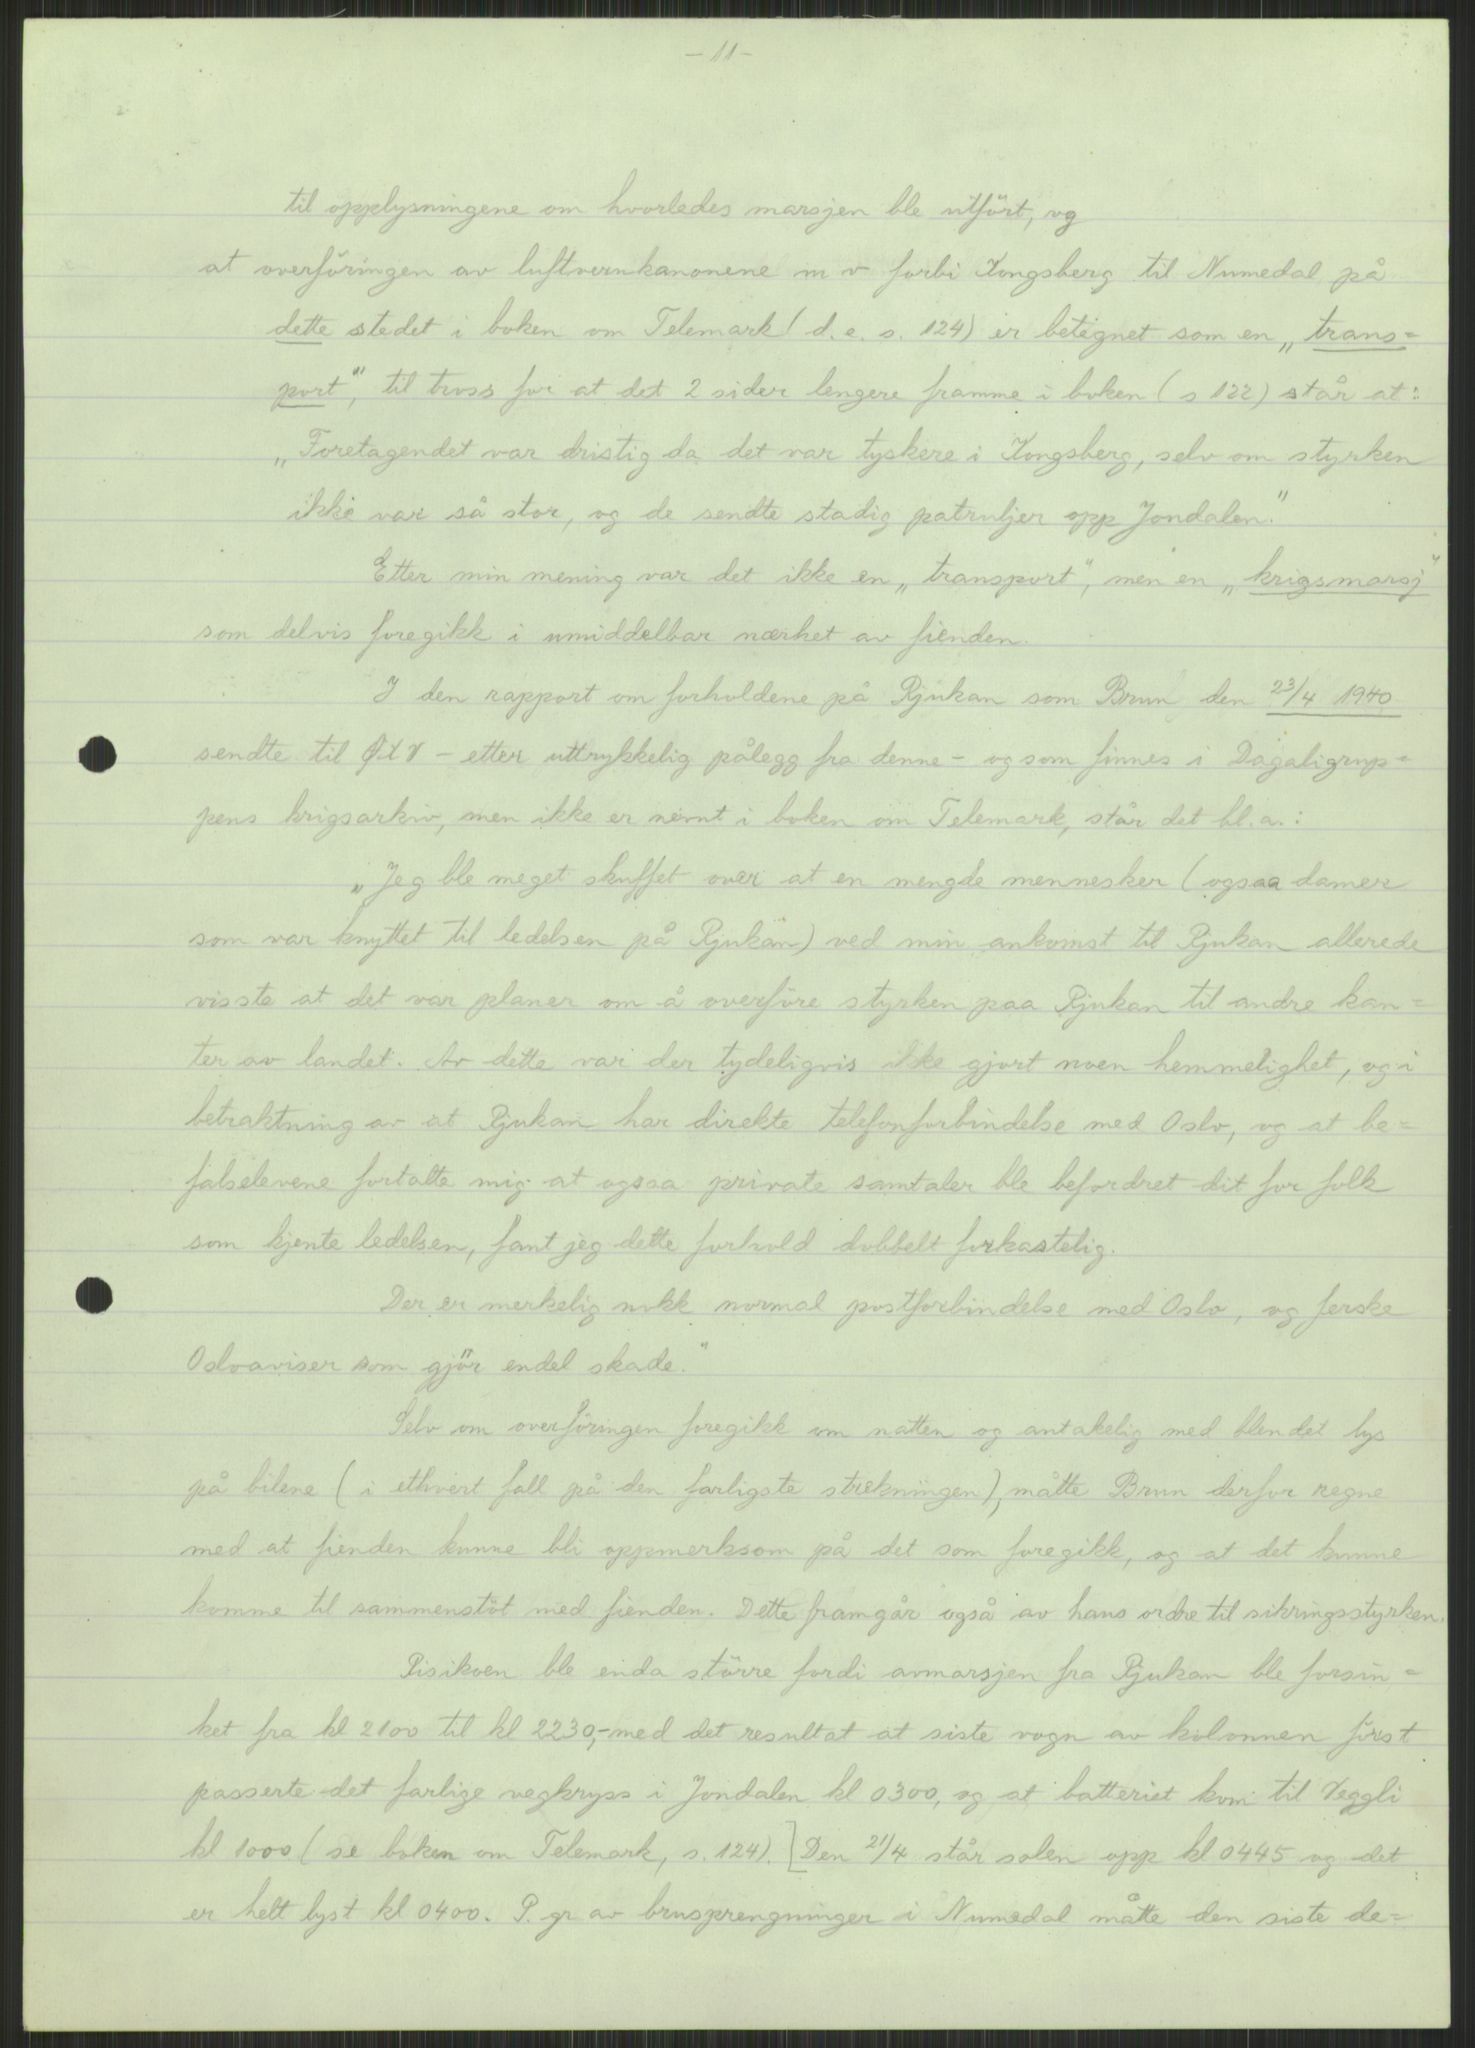 - 11 -
til opplysningene om hvorledes marsjen ble utført, og
at overføringen av luftvernkanonene m v forbi Kongsberg til Numedal på
dette stedet i boken om Telemark (d.e. s. 124) er betegnet som en „trans=
port", til tross for at det 2 sider lengere framme i boken (s 122) står at:
„Foretagendet var dristig da det var tyskere i Kongsberg, selv om styrken
ikke var så stor, og de sendte stadig patruljer opp Jondalen."
Etter min mening var det ikke en „transport", men en „krigsmarsj"
som delvis foregikk i umiddelbar nærhet av fienden.
I den rapport om forholdene på Rjukan som Brun den 23/4 1940
sendte til – etter uttrykkelig pålegg fra denne – og som finnes i Dagaligrup=
pens krigsarkiv, men ikke er nevnt i boken om Telemark, står det bl.a.:
„Jeg ble meget skuffet over at en mengde mennesker (ogsaa damer
som var knyttet til ledelsen på Rjukan) ved min ankomst til Rjukan allerede
visste at det var planer om å overføre styrken paa Rjukan til andre kan=
ter av landet. Av dette var der tydeligvis ikke gjort noen hemmelighet, og i
betraktning av at Rjukan har direkte telefonforbindelse med Oslo, og at be=
falselevene fortalte mig at ogsaa private samtaler ble befordret dit for folk
som kjente ledelsen, fant jeg dette forhold dobbelt forkastelig.
Der er merkelig nokk normal postforbindelse med Oslo, og ferske
Osloaviser som gjør endel skade."
Selv om overføringen foregikk om natten og antakelig med blendet lys
på bilene (i ethvert fall på den farligste strekningen), måtte Brun derfor regne
med at fienden kunne bli oppmerksom på det som foregikk, og at det kunne
komme til sammenstøt med fienden. Dette framgår også av hans ordre til sikringsstyrken.
Risikoen ble enda større fordi avmarsjen fra Rjukan ble forsin=
ket fra kl 2100 til kl 2230,– med det resultat at siste vogn av kolonnen først
passerte det farlige vegkryss i Jondalen kl 0300, og at batteriet kom til Veggli
kl 1000 (se boken om Telemark, s. 124). [Den 21/4 står solen opp kl 0445 og det
er helt lyst kl 0400. P. gr av brusprengninger i Numedal måtte den siste de=